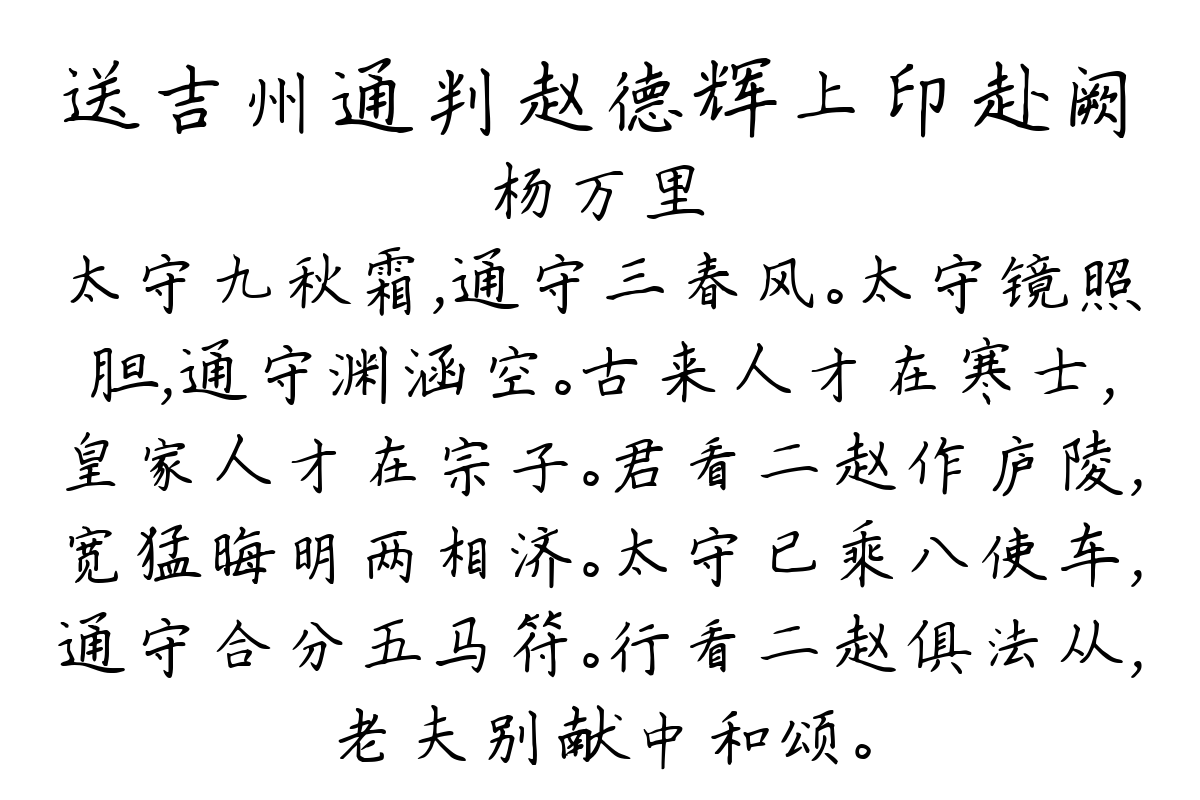 送吉州通判赵德辉上印赴阙
杨万里
太守九秋霜,通守三春风。太守镜照
胆,通守渊涵空。古来人才在寒士,
皇家人才在宗子。君看二赵作庐陵,
宽猛晦明两相济。太守已乘八使车,
通守合分五马符。行看二赵俱法从,
老夫别献中和颂。